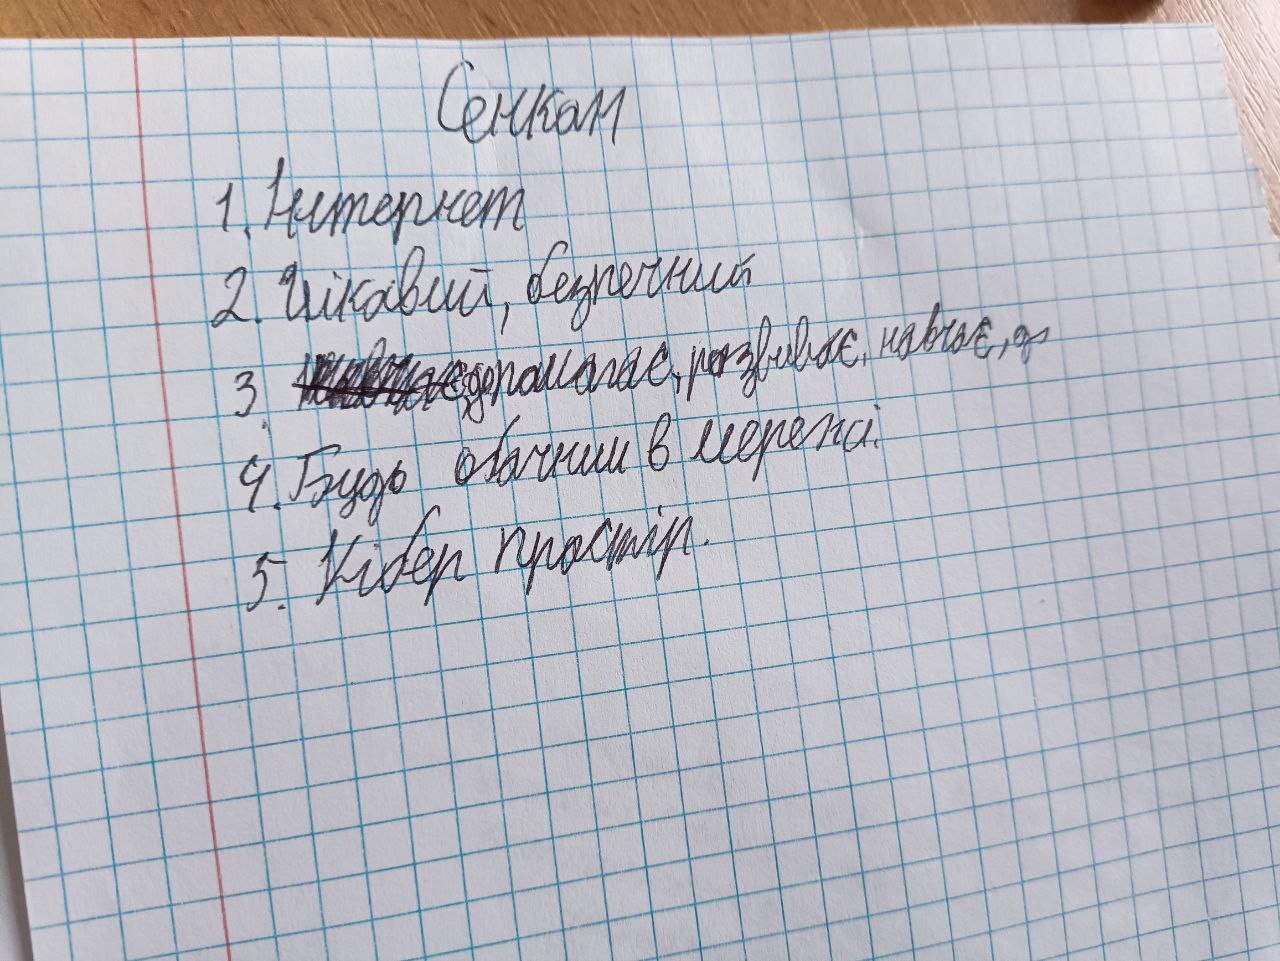 Сенкан
1. Інтернет
2. Цікавий, безпечний
3. допомагає, розвиває, навчає, д
4. Будь обачним в мережі.
5. Кібер простір.